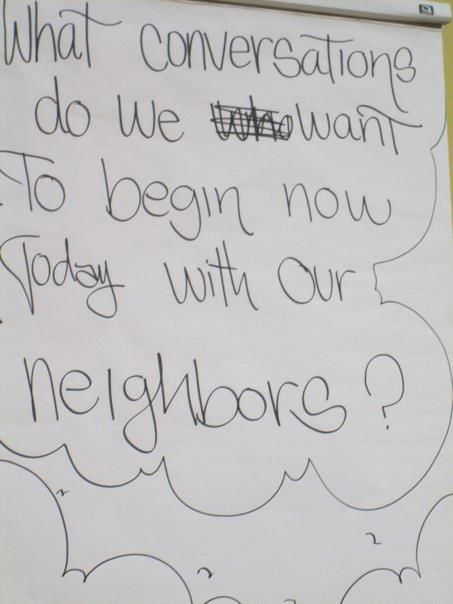 What conversations
do we want
To begin now
Today with our
neighbors?